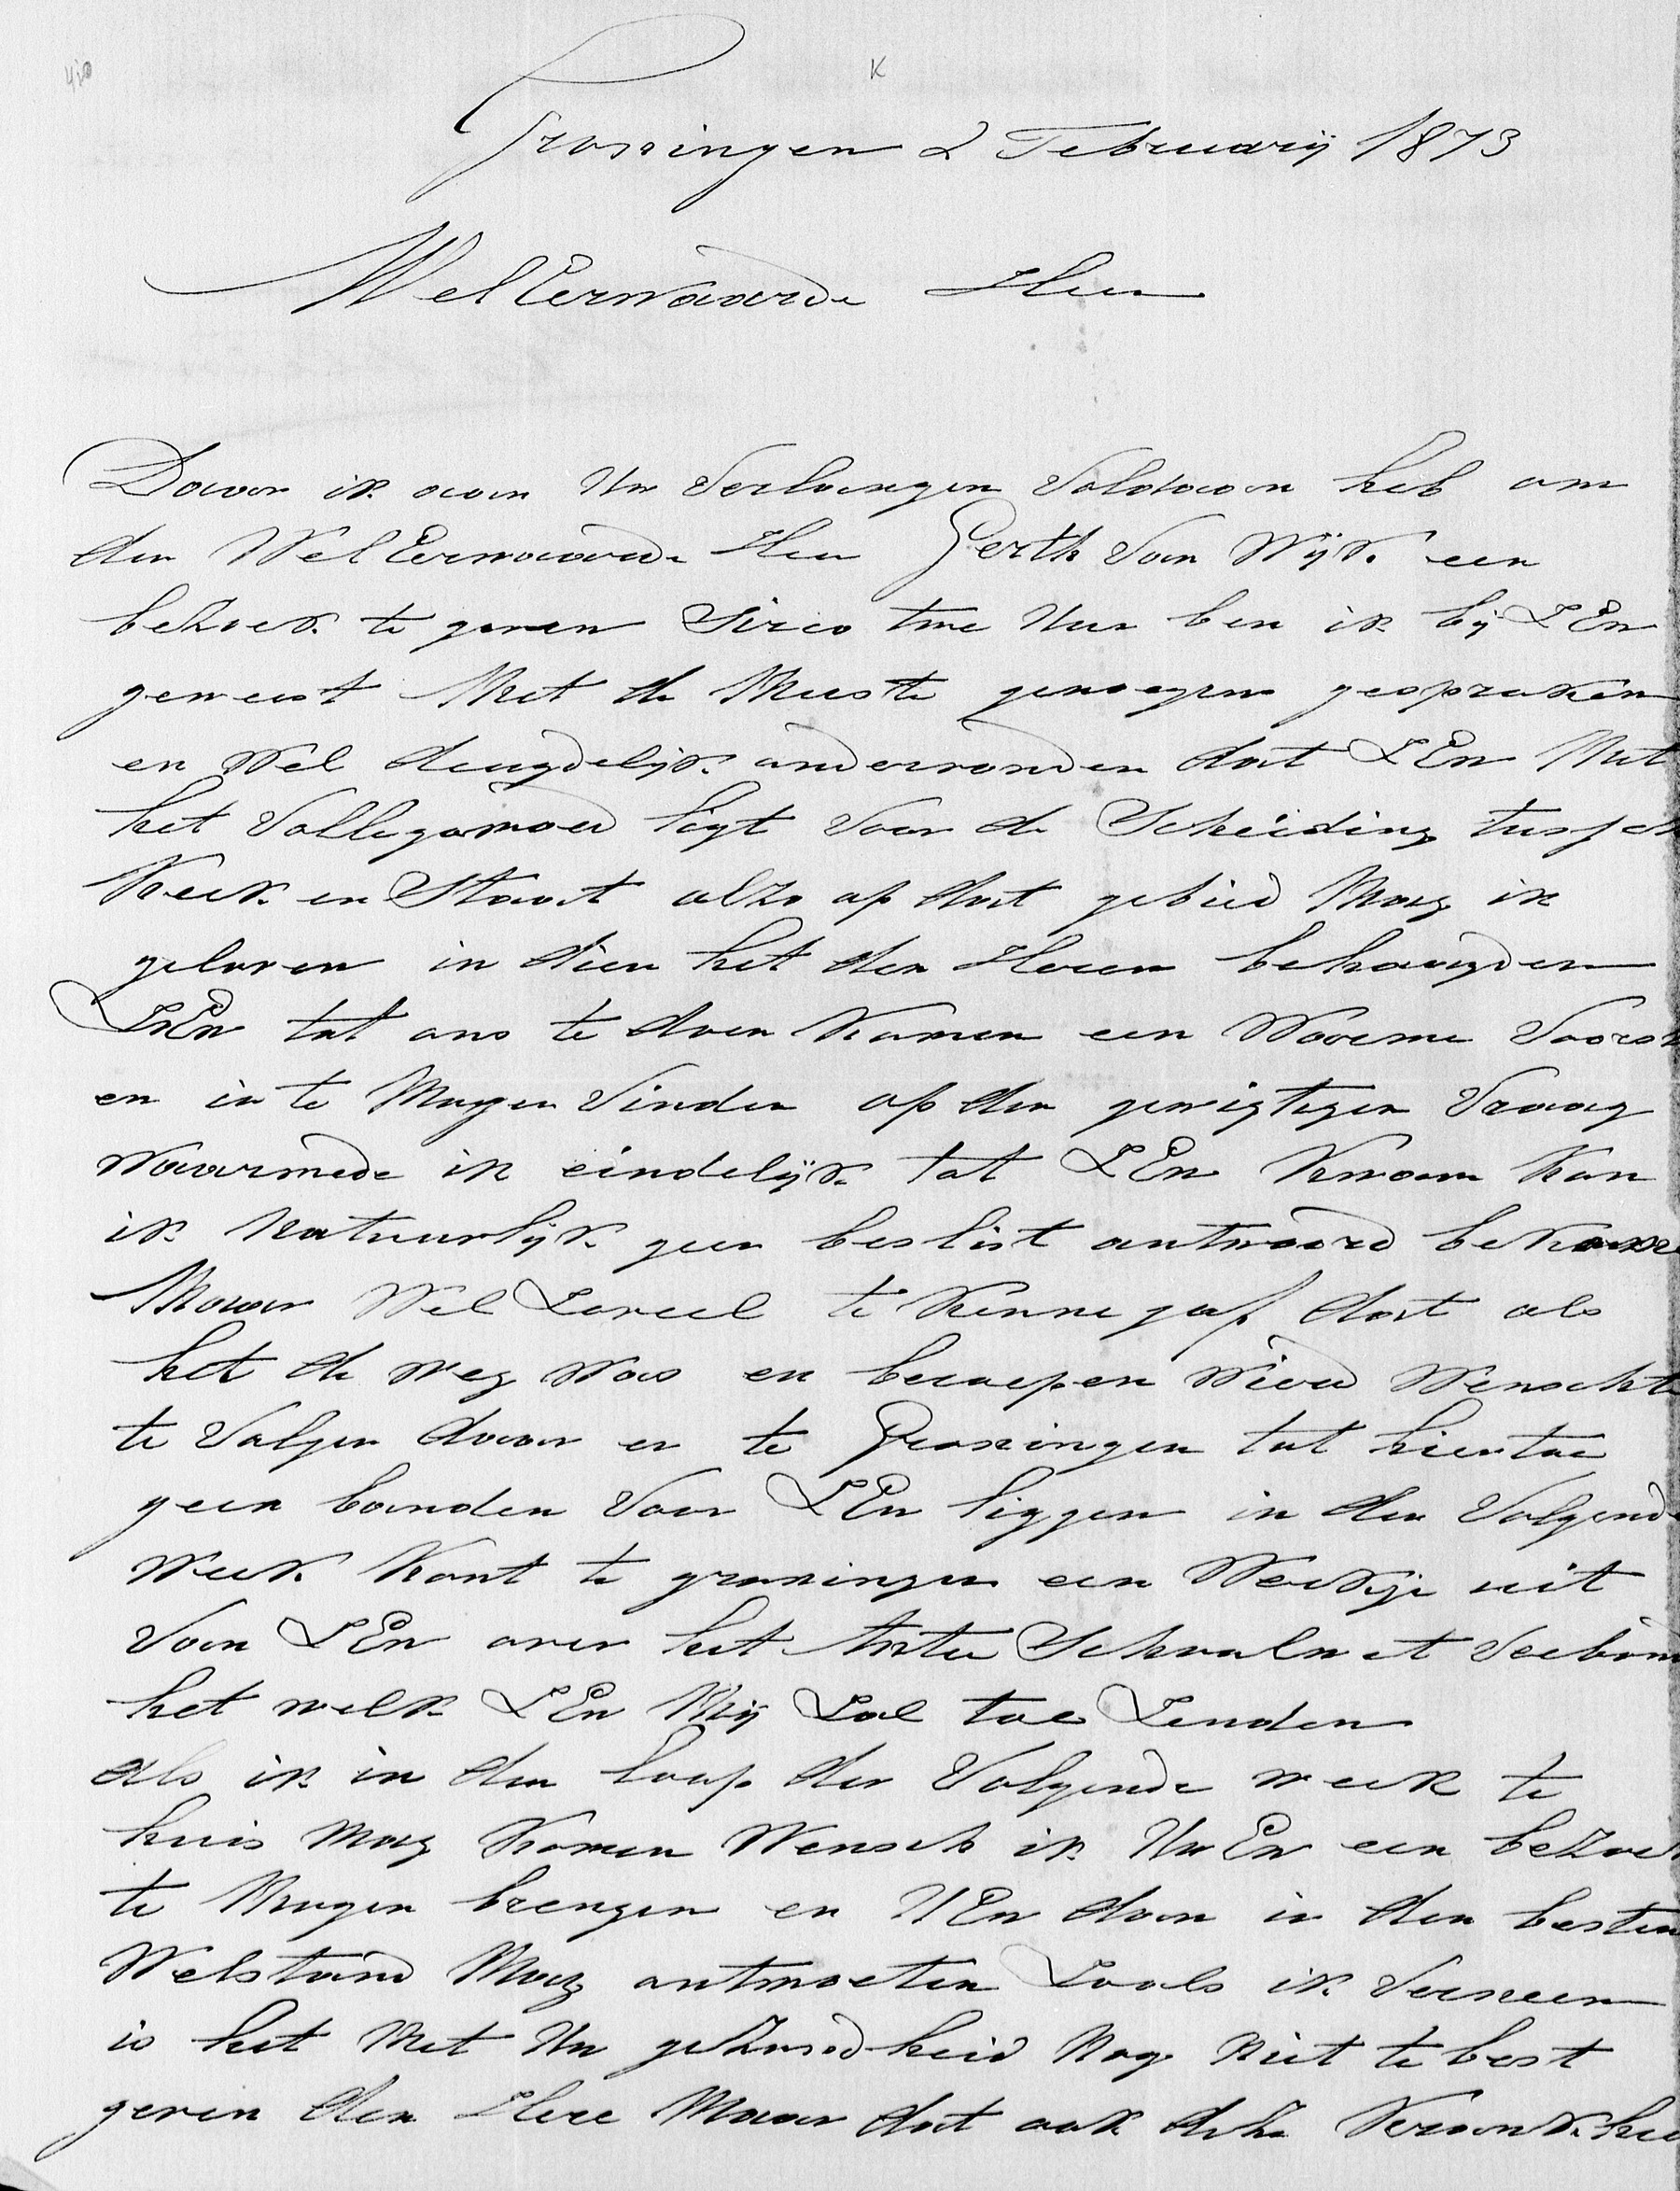 K
Groningen 2 Februarij 1873
WelEerwaarde Heer
Daar ik aan Uw Verlangen Voldaan heb om
den WelEerwaarde Heer Gerth Van Wijk een
beZoek te geven Sirca twe Uur ben ik bij ZEw
geweest Met de Meeste genoegen gesproken
en Wel deugdelijk ondervonden dat ZEw Met
het Volle gamoed ligt Voor de Scheiding tussch
Kerk en Staat alzo op dat gebied Mag ik
geloven in dien het den Heren behaagden
ZEw tot ons te doen Komen een Warme Voorst
en in te Mogen Vinden op den gewigtigen Vraag
Waarmede ik eindelijk tot ZEw Kwam Kon
ik Natuurlijk geen beslist antwoord bekome
Maar Wel Zoveel te Kenne gaf dat als
het de weg Was en beroepen Wierd Wenscht
te Volgen daar er te Groningen tot hiertoe
geen banden Voor ZEw liggen in den Volgende
Week Komt te groningen een Werkje uit
Van ZEw over het Antie Schoolwet Verbond
het welk ZEw Mij Zal toe Zenden
als ik in den loop der Volgende week te
huis Mag Komen Wensch ik UwEw een beZoek
te Mogen brengen en UEw dan in den besten
Welstand Mag ontmoeten Zoals ik Verneem
is het Met Uw geZondheid Nog Niet te best
geven den Here Maar dat ook deze Krankhei